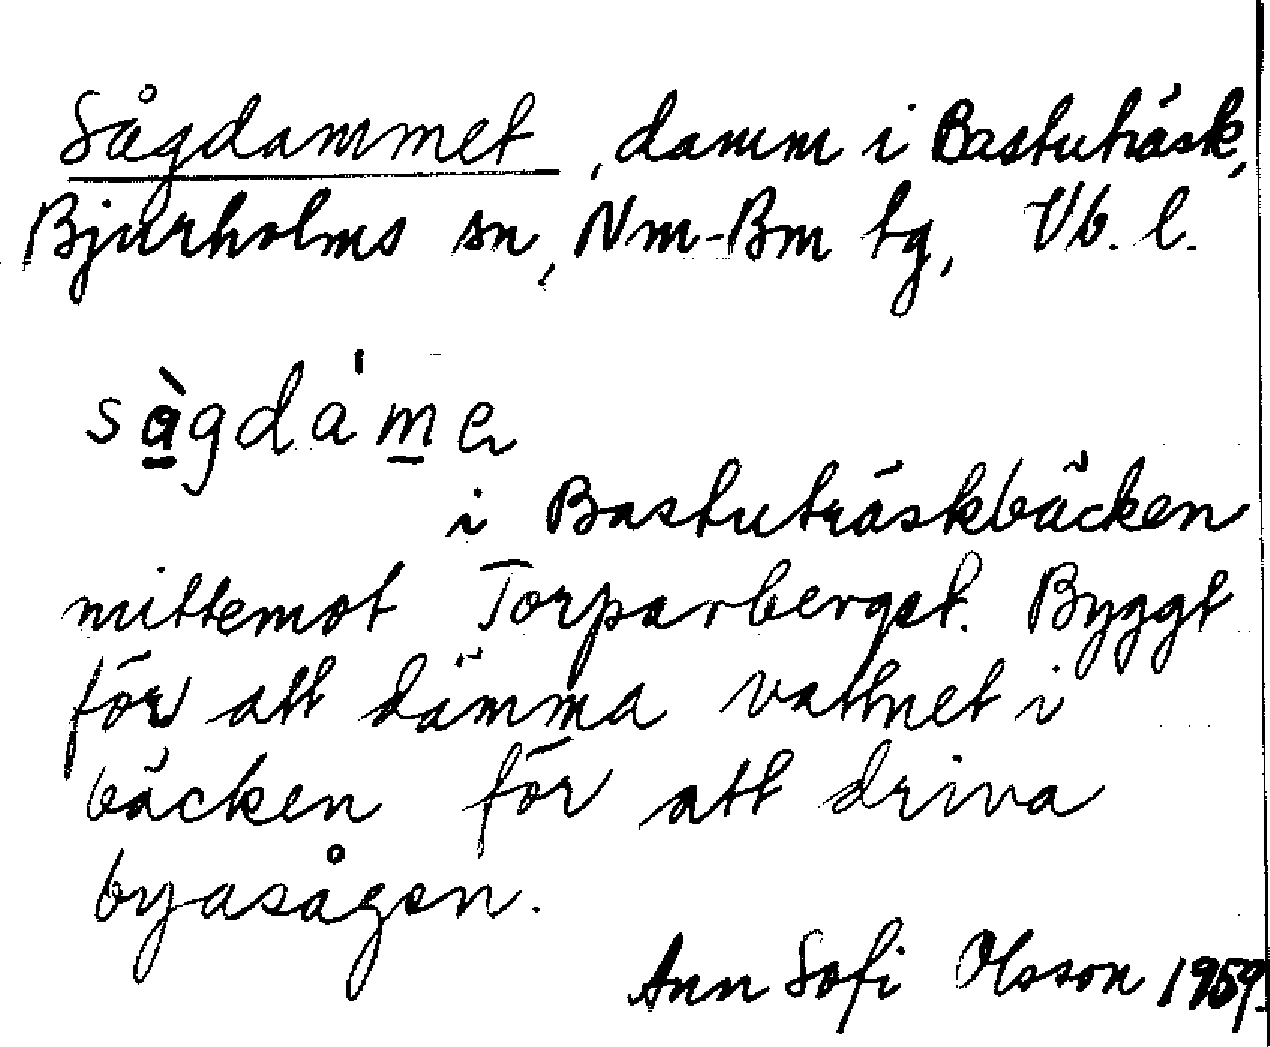 Sågdammet, damm i Bastuträsk,
Bjurholms sn, Nm-Bm tg, Vb. l.
sàgda'me
i Bastuträskbäcken
mittemot Torparberget. Byggt
för att dämma vattnet i
bäcken för att driva
byasågen.
Ann Sofi Olsson 1959.